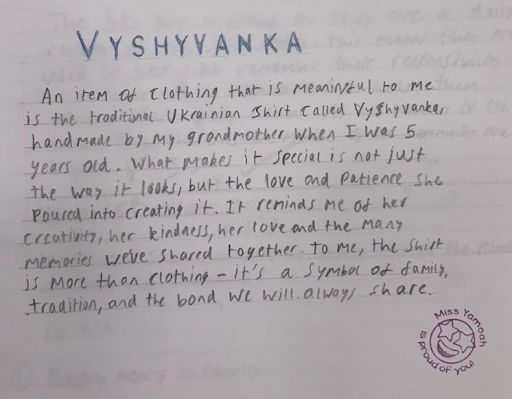 VYSHYVANKA
An item of clothing that is meaningful to me
is the traditional Ukrainian shirt called Vyshyvanka,
handmade by my grandmother when I was 5
years old. What makes it special is not just
the way it looks, but the love and patience she
poured into creating it. It reminds me of her
creativity, her kindness, her love and the many
memories we've shared together. To me, the shirt
is more than clothing - it's a symbol of family,
tradition, and the bond we will always share.
Miss Yamoah
is proud of you!